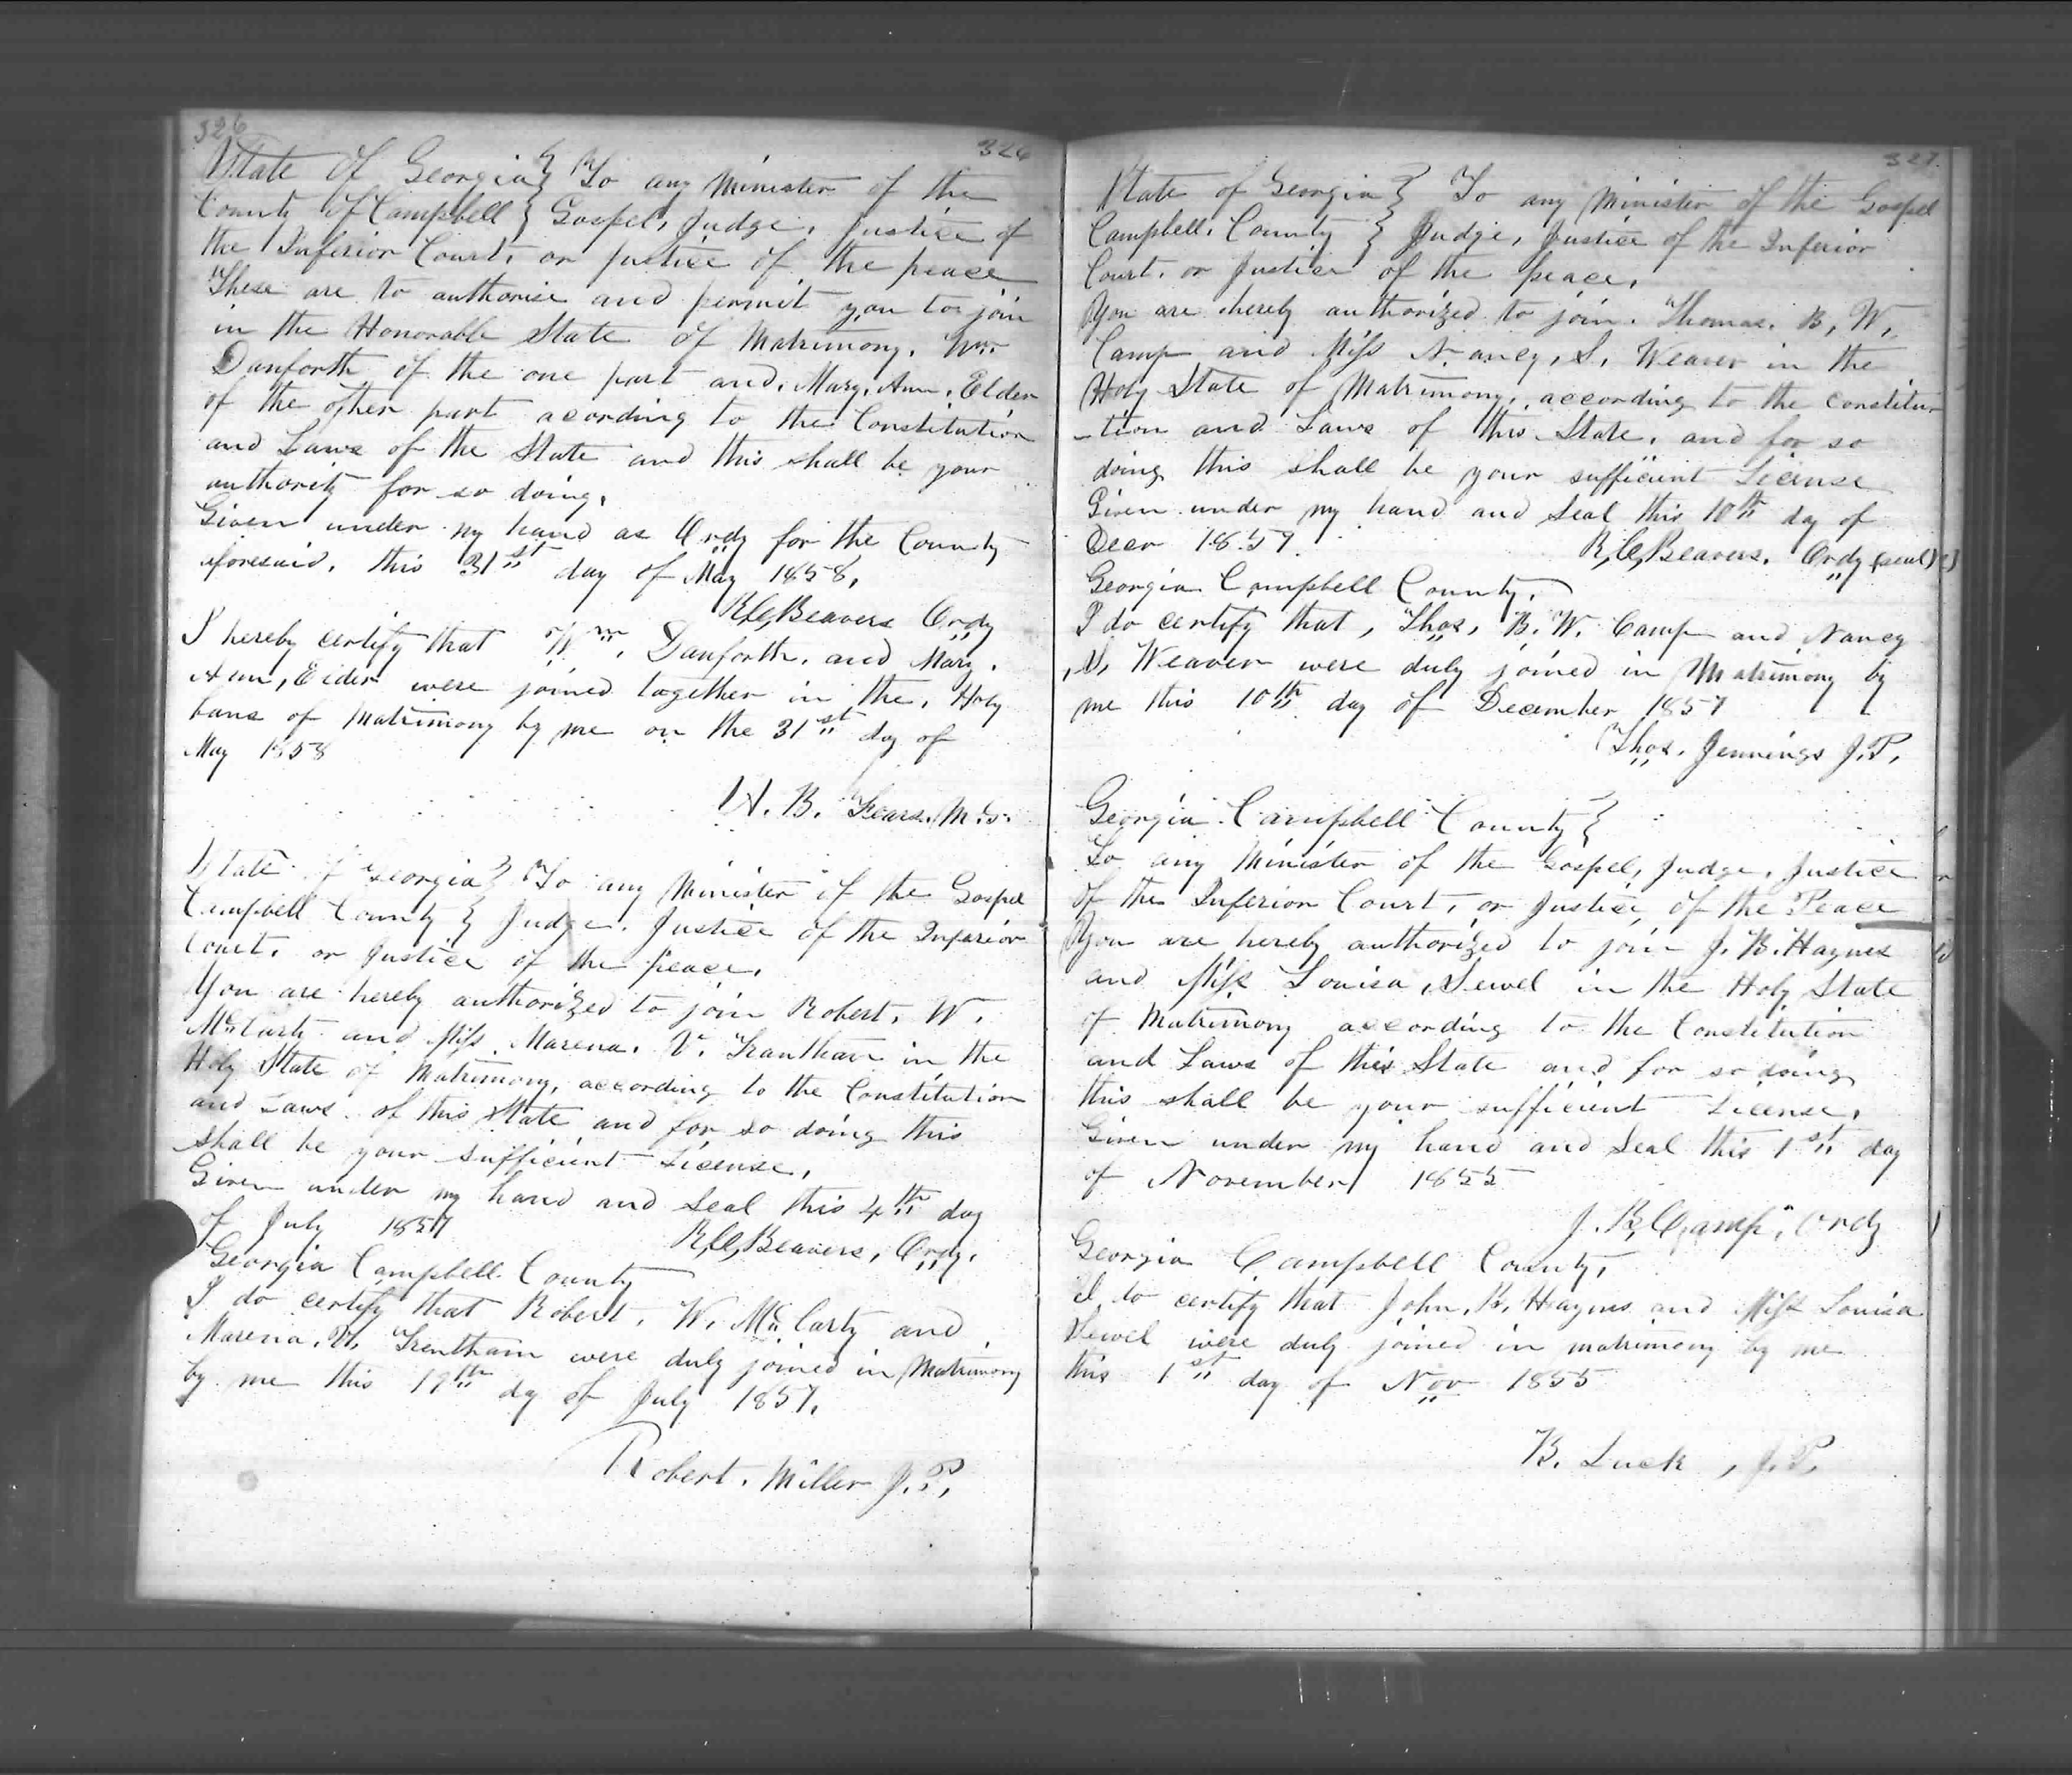 326
326
State of Georgia } To any Minister of the
County of Campbell } Gospel, Judge, Justice of
the Inferior Court, or Justice of the peace
These are to authorise and permit you to join
in the Honorable State of Matrimony, Wm.
Danforth of the one part and, Mary, Ann, Elder
of the other part acording to the Constitution
and Laws of the State and this shall be your
authority for so doing,
Given under my hand as Ordy for the County
aforesaid, this 31st day of May 1858,
R.C. Beavers Ordy
I hereby certify that Wm. Danforth, and Mary,
Ann, Elder were joined together in the, Holy
bans of Matrimony by me on the 31st day of
May 1858
B. M. G.
State of Georgia } To any Minister of the Gospel
Campbell County } Judge, Justice of the Inferior
Court, or Justice of the peace,
You are hereby authorized to join Robert, W,
McCarty and Miss Marena, V, Trantham in the
Holy State of Matrimony, according to the Constitution
and Laws of this State and for so doing this
shall be your sufficient License,
Given under my hand and Seal this 4th day
of July 1857
R.C. Beavers, Ordy,
Georgia Campbell County
I do certify that Robert, W, McCarty and
Marena, V, Trentham were duly joined in Matrimony
by me this 19th day of July 1857,
Robert, Miller J.P,
327
State of Georgia } To any Minister of the Gospel
Campbell, County } Judge, Justice of the Inferior
Court, or Justice of the peace,
You are hereby authorized to join, Thomas, B, W,
Camp and Miss Nancy, S, Weaver in the
Holy State of Matrimony, according to the constitu-
-tion and Laws of this State, and for so
doing this shall be your sufficient License
Given under my hand and Seal this 10th day of
Decr 1857
R.C. Beavers, Ordy (seal)
Georgia Campbell County,
I do certify that, Thos, B, W, Camp and Nancy
,S, Weaver were duly joined in Matrimony by
me this 10th day of December 1857
Thos. Jennings J.P,
Georgia Campbell County }
To any Minister of the Gospel, Judge, Justice
of the Inferior Court, or Justice of the Peace
You are hereby authorized to join J. B. Haynes
and Miss Louisa, Sewel in the Holy State
of Matrimony according to the Constitution
and Laws of this State and for so doing
this shall be your sufficient License,
Given under my hand and Seal this 1st day
of November 1855
J. B, Camp, Ordy
Georgia Campbell County,
I do certify that John, B, Haynes and Miss Louisa
Sewel were duly joined in matrimony by me
this 1st day of Nov 1855
B. Luck, J.P,